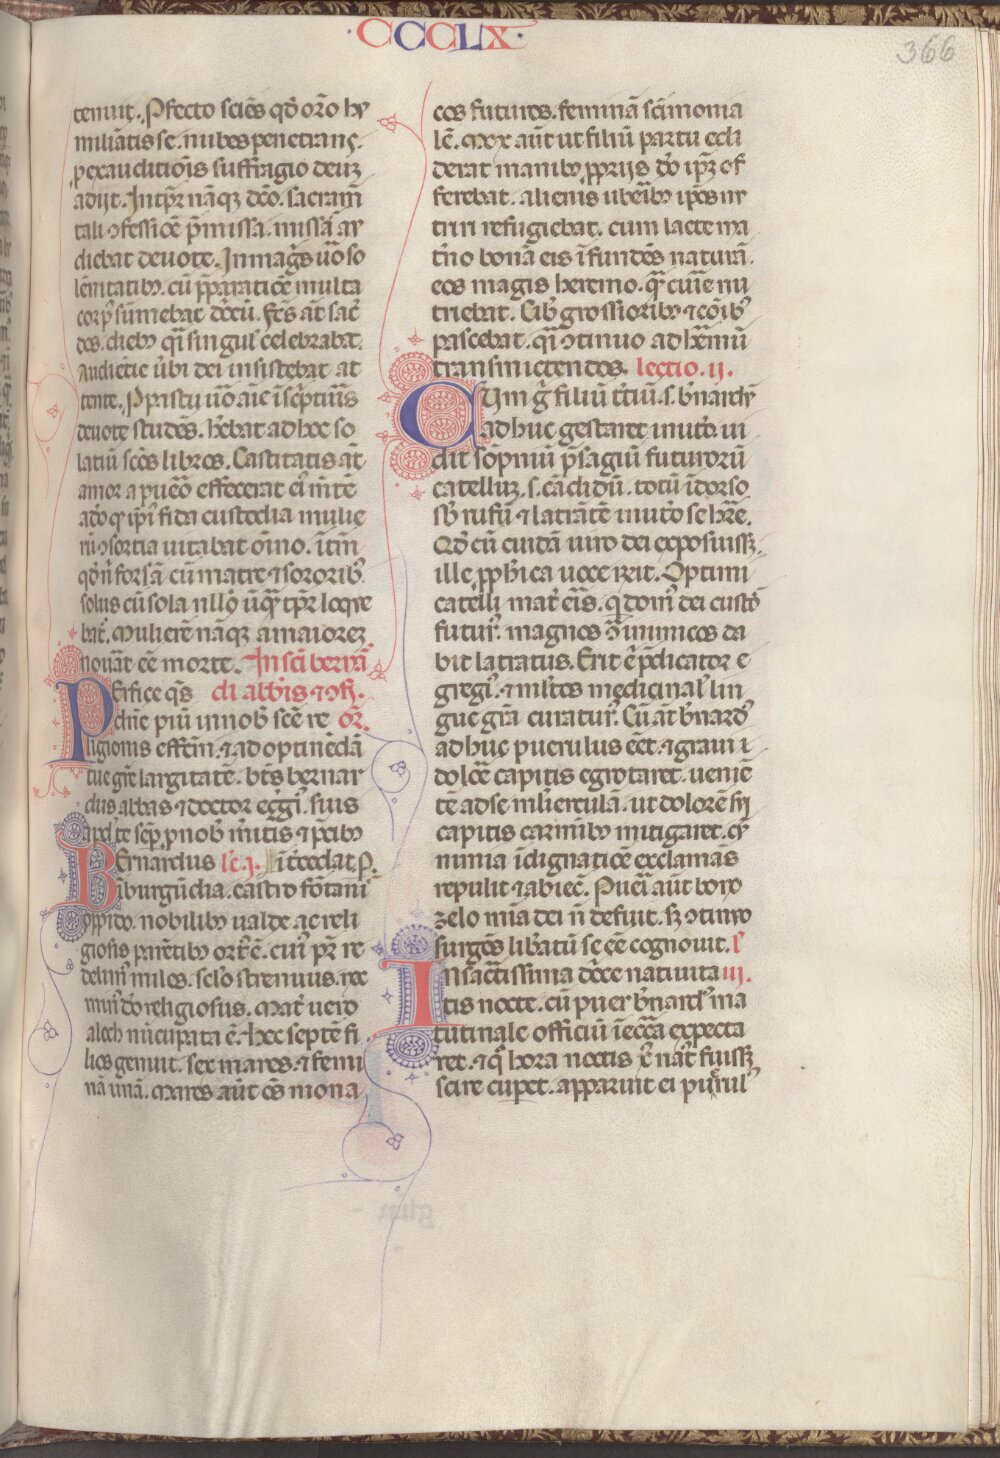 ·CCCLX·
366
tenuit. Pfecto sciēs qđ orō hu
miliātis se. nubes penetrans.
p exauditiōis suffragio deuz
adijt. Intp̄r nāqz dc̄o. sacram̄
tali ɔfessiōe p̄missa. missā au
diebat deuote. In mag̃s ūo so
lēnitatibꝰ. cū p̄paratiōe multa
corpꝰ sumebat dñicū. Fc̄s at̄ sac̄
dos. diebꝰ q̄i singul' celebrabat.
Audiētie ūbi dei insistebat at
tente.
deuote studēs. h̄ebat ad hoc so
latiū scōs libros. Castitatis at̄
amor a puero effecerat ei in te
rū ɔsortia uitabat om̄o. ītm̄
qđ n̄ forsā cū matre ⁊ sororibꝰ
solus cū sola
bat̄. Mulierē nāqz amariorez
nouāt eē morte. In sc̄i berna
Perfice q̄s di abb̄is ⁊ ɔf.
dn̄e piū in nob̄ sc̄e re or̄.
ligionis effc̄m. ⁊ ad optinēdā
tue grē largitatē. bt̄s bernar
dus abbas ⁊ doctor egg̃i'. suis
apd' te semp̄ p nob̄ m̄itis ⁊ p̄cibꝰ
Bernardus lc̄.j. īt̄cedat p.
ī burgūdia. castro fōtanis
oppido. nobilibꝰ valde ac reli
giosis parētibꝰ ort' ē. cuiꝰ pr̄ te
celinꝰ miles. sclo strenuus. nec
minꝰ đo religiosus. Mat̄ uero
aleth nūcupata ē. hec septē fi
lios genuit. sex mares. ⁊ femi
nā unā. Mares aūt oēs mona
cos futuros. feminā sc̄imonia
lē. Mox aūt ut filiū partu edi
derat manibꝰ pprijs đo ipz of
ferebat. alienis ub̄eribꝰ ip̄os nu
triri refugiebat. cum lacte ma
t̄no bonā eis īfundēs naturā.
eos magis heremo. q̄ curie nu
triebat. Cib' grossioribꝰ ⁊ cōib'
pascebat. q̄i ɔtinuo ad h̄emū
transmictendos. lectio .ij.
Cum g̃ filiū t̄tiū. s. b̄nardū
adhuc gestaret in ut̄o. ui
dit sōpniū p̄sagiū futurorū
catelluz. s. cādidū. totū ī dorso
sb̄ rufū ⁊ latrātē in ut̄o se h̄re.
Qđ cū cuidā uiro dei exposuissz.
ille pph̄ica uoce r̄xit. Optimi
catelli mat̄ eris. q̄ dom' dei custo
futur'. magnos ɔ inimicos da
bit latratus. Erit ē p̄dicator e
gregi'. ⁊ ml'tos medicinal' lin
gue gr̄a curatur'. Cū aūt b̄nard'
adhuc puerulus eēt. ⁊ graui
dolōe capitis egrotaret. ueniē
tē ad se ml'ierculā. ut dolorē sij
capitis carminibꝰ mitigaret. cū
nimia īdignatiōe exclamās
repulit ⁊ abiec̄. Puerī aūt bono
zelo mīa dei n̄ defuit. sz ɔtinuo
surgēs lib̄atū se eē cognouit. l'
In sāctissima dn̄ice natiuita iij.
tis nocte. cū puer b̄nard' ma
tutinale officiū ī eccā expecta
ret. ⁊ q̄ hora noctis x̄ nat̄ fuissz
scire cupet. apparuit ei puerul'